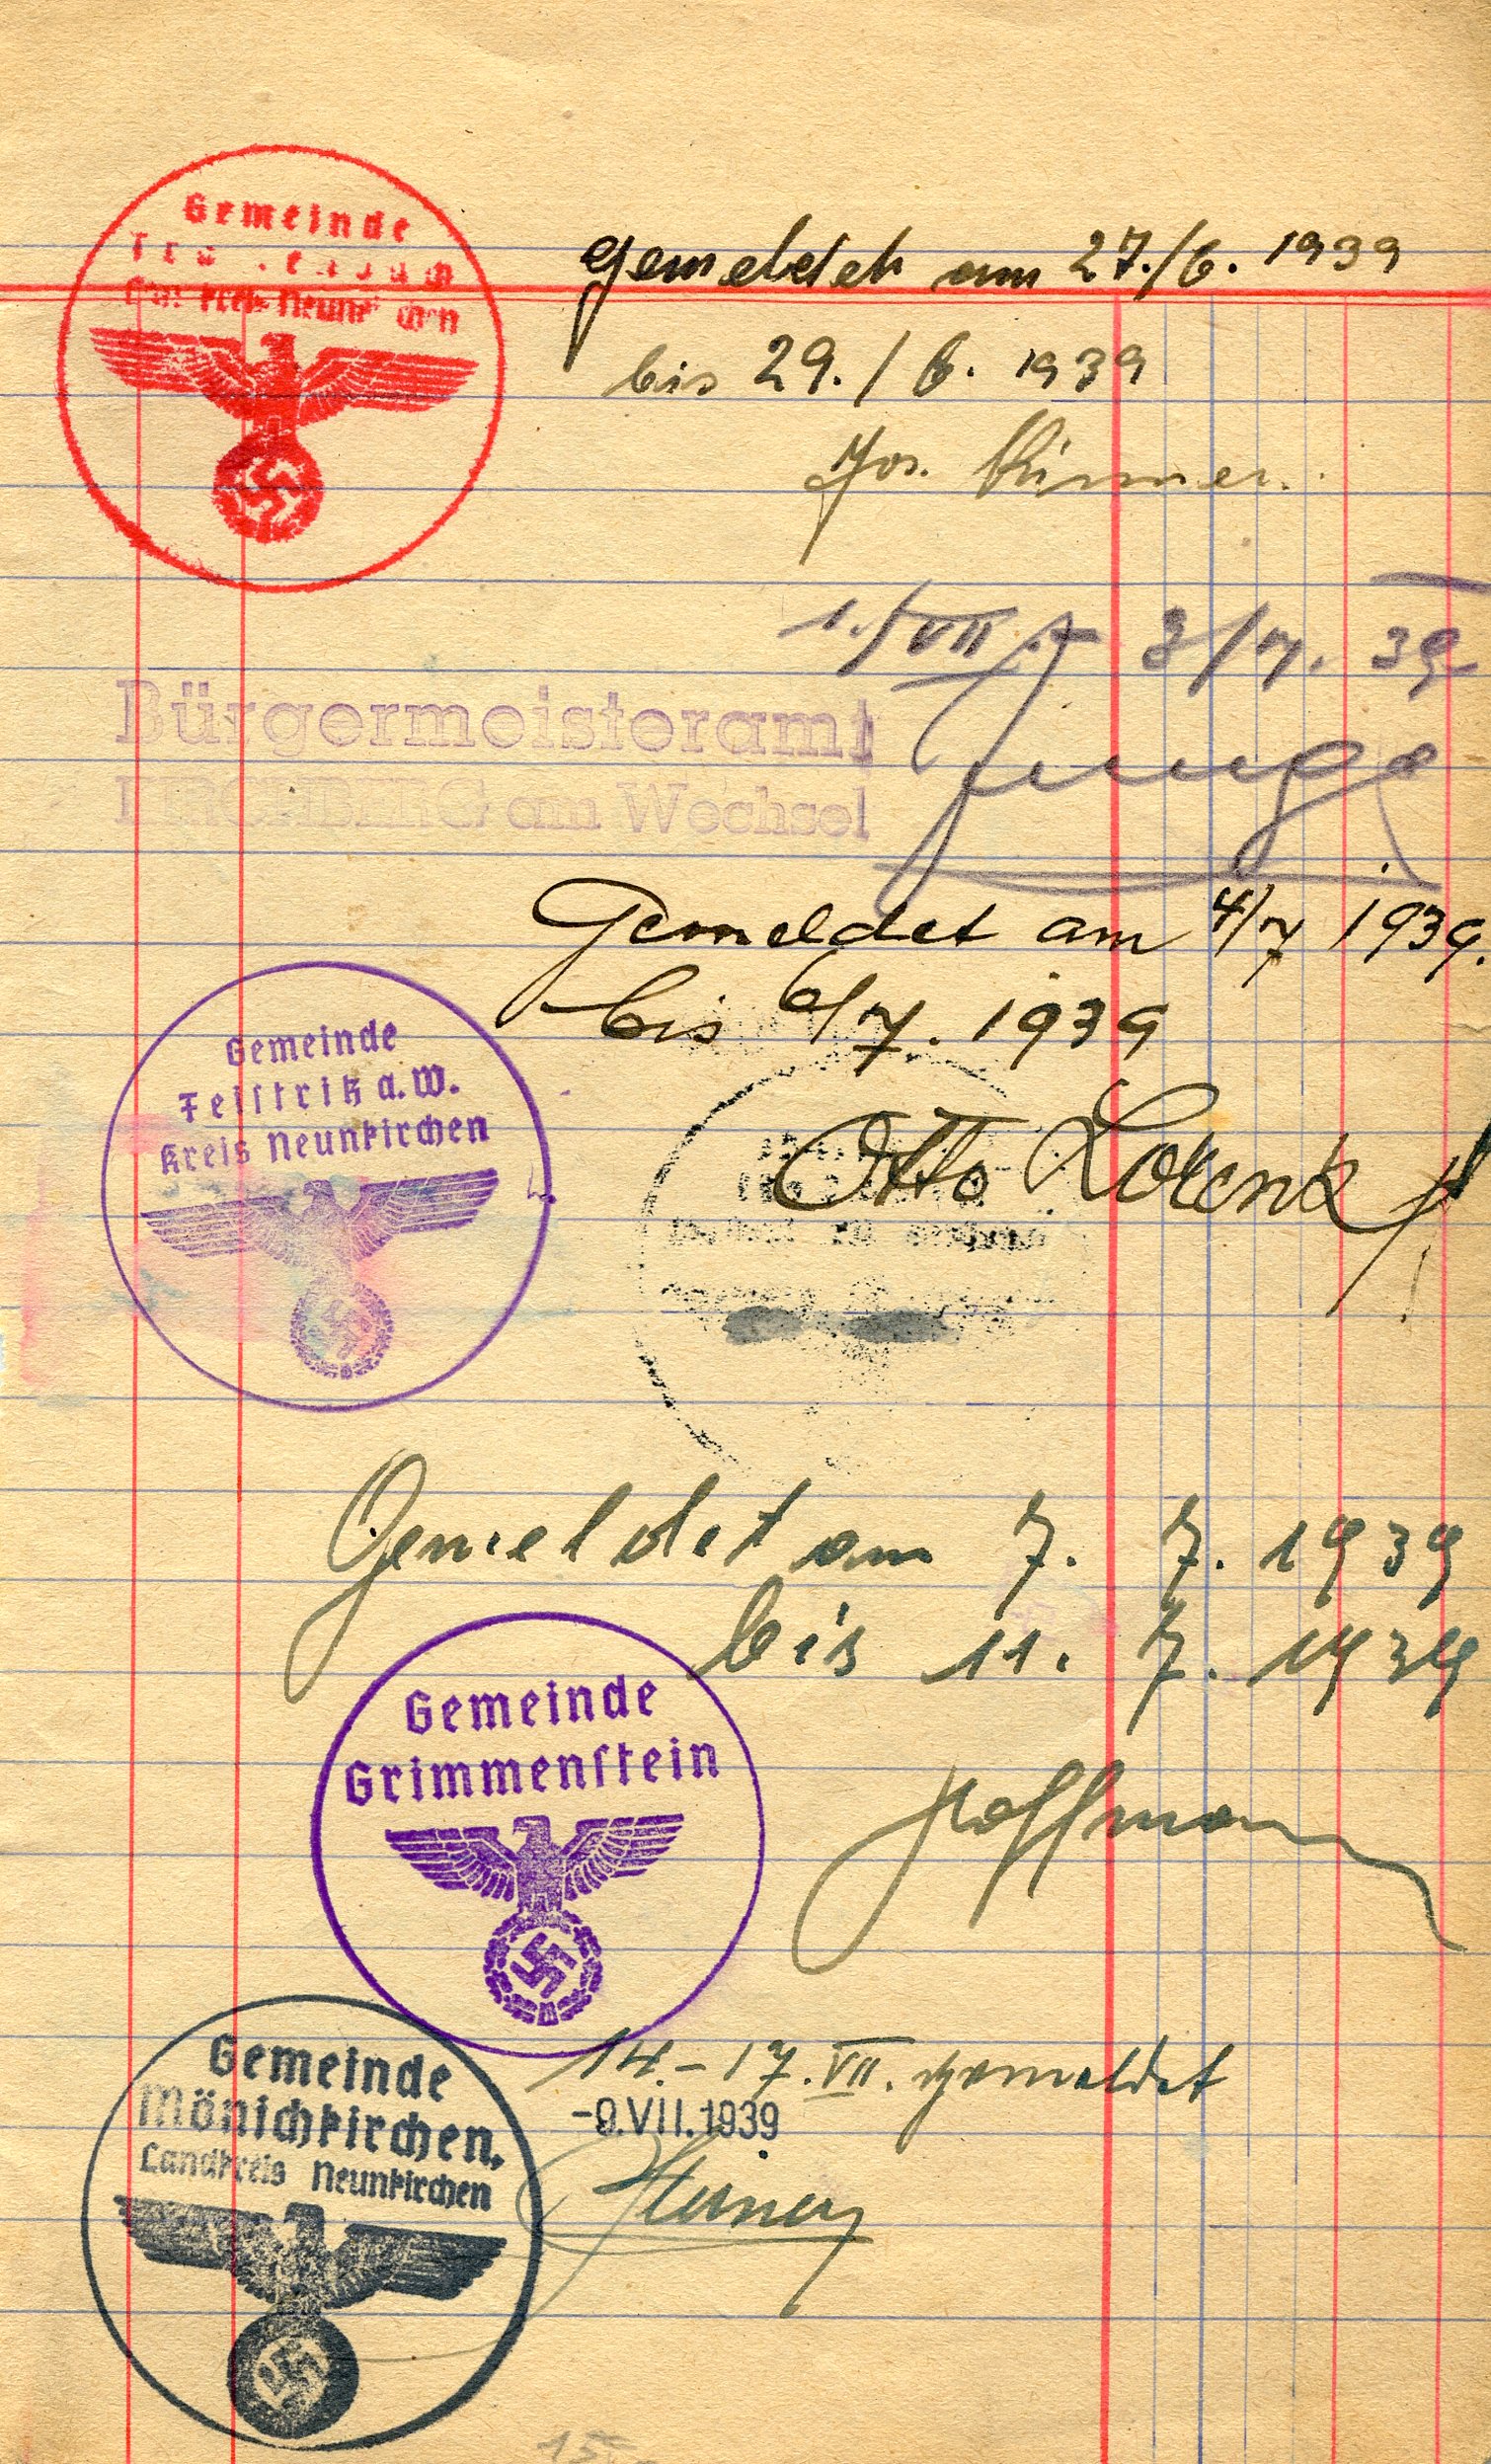 Gemeinde
Kreis Neunkirchen
gemeldet am 27./6. 1939
bis 29./6. 1939
Jos.
1./VII. 3/7. 39
Bürgermeisteramt
am Wechsel
Gemeldet am 4/7 1939.
bis 6/7. 1939
Gemeinde
Feistritz a. W.
Kreis Neunkirchen
Otto Lorenz
Gemeldet am 7. 7. 1939
bis 11. 7. 1939
Gemeinde
Grimmenstein
Hoffmann
14.–17. VII. gemeldet
-9.VII.1939
Gemeinde
Mönichkirchen.
Landkreis Neunkirchen